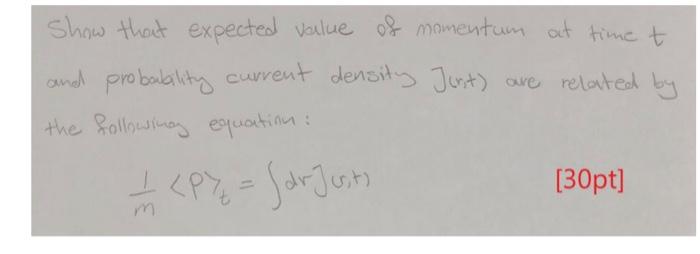 Show that expected value of momentum at time t
and probability current density J(r,t) are related by
the following equation:
1/m <P>_t = ∫dr J(r,t) [30pt]